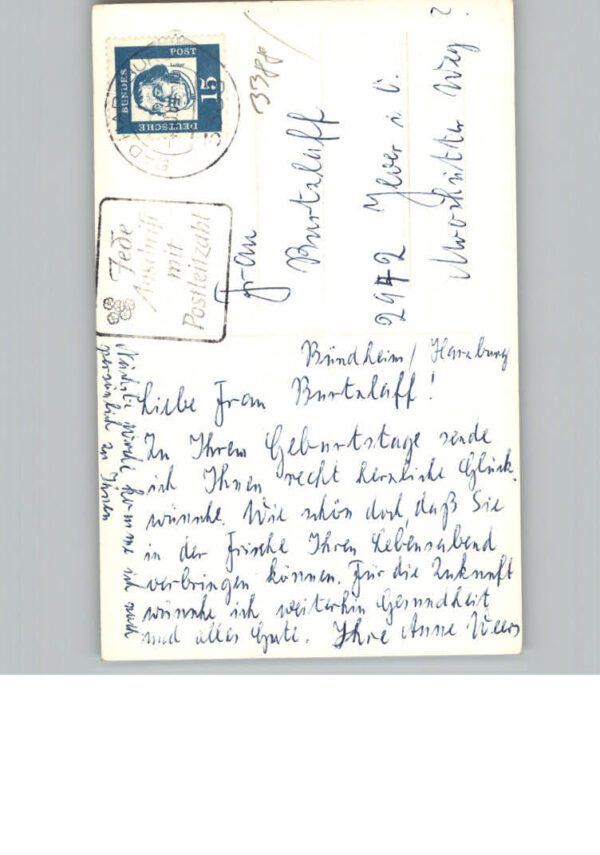 DEUTSCHE
BUNDES
POST
15
Jede
Anschrift
mit
Postleitzahl
33
Frau
Burtzlaff
2942 Jever i. O.
Weg 2
Bündheim/Harzburg
Liebe Frau Burtzlaff!
Zu Ihrem Geburtstage sende
ich Ihnen recht herzliche Glück
wünsche. Wie schön doch, daß Sie
in der Frische Ihren Lebensabend
verbringen können. Für die Zukunft
wünsche ich weiterhin Gesundheit
und alles Gute. Ihre Anne Weers
Nächste Woche komme ich auch
persönlich zu Ihnen